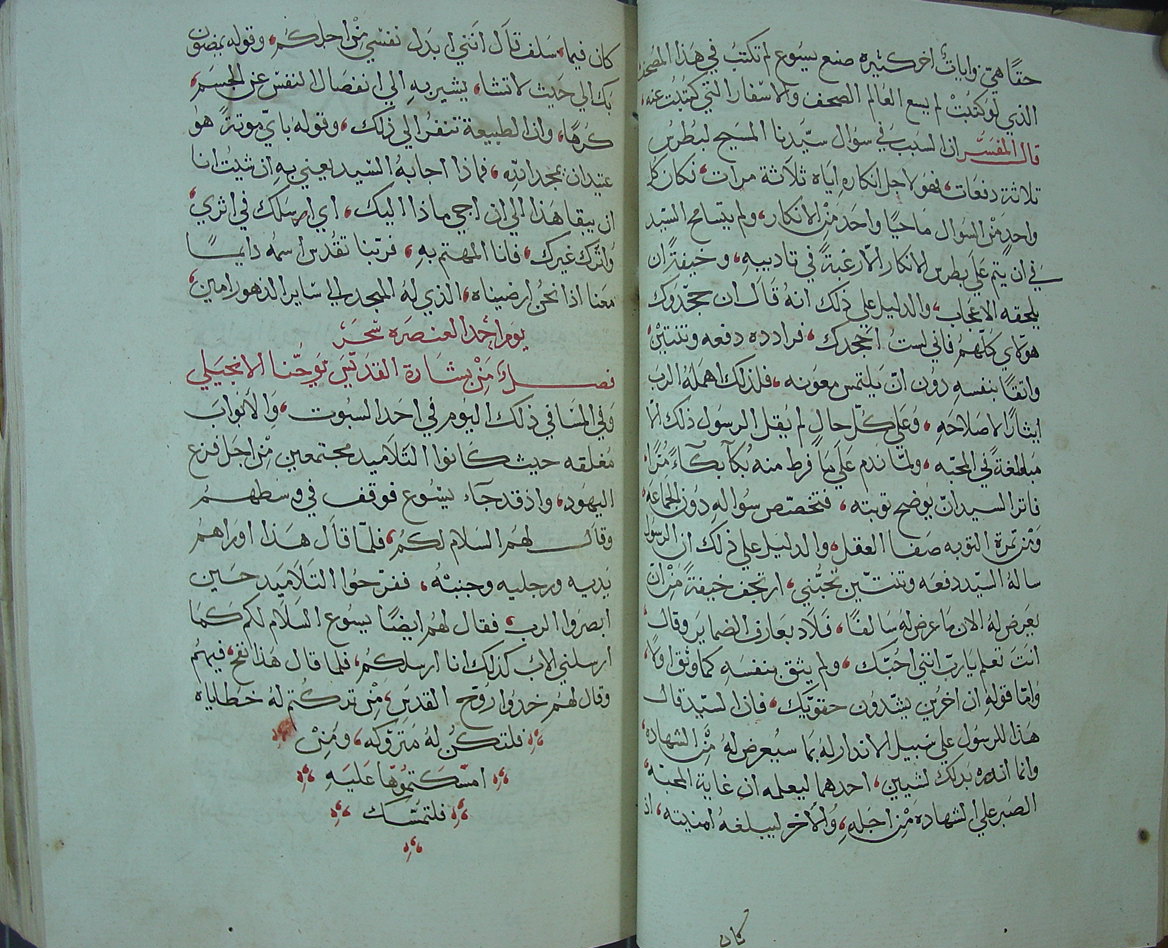 حقًا هي وايات اخر كثيره صنع يسوع لم تكتب في هذا المصحف
الذي لو كتبت لم يسع العالم الصحف والاسفار التي كتبت عنه
قال المفسر ان السبب في سوال سيّدنا المسيح لبطرس
ثلاثة دفعات، فهو لاجل انكاره اياه ثلاثة مرات، فكان كل
واحدٍ من السوال ماحيًا واحد من الانكار، ولم يتسامح السيّد
في ان يتم على بطرس الانكار الا رغبةً في تاديبهِ، وخيفةً ان
يلحقه الاعجاب، والدليل على ذلك انهُ قال ان جحدوك
هولاي كلّهم فاني لست اجحدك، فرادده دفعه وثنتين
واثقًا بنفسهِ دون ان يلتمس معونه، فلذلك اهملهُ الرب
ايثارًا لاصلاحهِ، وعلى كلّ حالٍ لم يقل الرسول ذلك الا
مبالغةً في المحبّه، ولمّا ندم على ما فرط منه بكا بكاءً مُرًّا
فاثرا السيد ان يوضح توبته، فتخصّص سوالهِ دون الجماعه
وثمرة التوبه صفا العقل، والدليل على ذلك ان الرسول
سالهُ السيّد دفعه وثنتين تحبّني، ارتجف خيفةً من ان
يعرض لهُ الان ما عرض له سالفًا، فلاد بعارف الضماير وقال
انت تعلم يارب انني احبّك، ولم يثق بنفسه كما وثق اولاً
وامّا قولهِ ان اخرين يشدّون حقويّك، فان السيّد قال
هذا للرسول على سبيل الانذار له بما سيُعرض لهُ من الشهاده
وانما انذره بذلك لشيين، احدهما ليعلمه ان غاية المحبّه
الصبر على الشهاده من اجله، والاخر ليبلغهُ امنيته، اذ
كان
كان فيما سلف قال انني ابدل نفسي من اجلكم، وقوله يمضون
بك الى حيث لا تشا، يشير به الى انفصال النفس عن الجسم
كرهًا، وان الطبيعة تنفر الى ذلك، وقوله باي موتةٍ هو
عتيد ان يمجد الله، فماذا اجابهُ السيّد يعني به ان شيت انا
ان يبقا هذا الى ان اجي ماذا اليك، اي ارسلك في اثري
واترك غيرك، فانا المهتم به، فربّنا تقدّس اسمه دايمًا
معنا اذا نحن ارضيناه، الذي له المجد الى ساير الدهور امين
يوم احد العنصره سَحَر
فصل من بشارة القديّس يوحّنا الانجيلي
وفي المسا في ذلك اليوم في احد السبوت، والابواب
مغلقه حيث كانوا التلاميد مجتمعين من اجل فزع
اليهود، واذ قد جاء يسوع فوقف في وسطهم
وقال لهم السلام لكم، فلمّا قال هذا اوراهم
يديه ورجليه وجنبهُ، ففرحوا التلاميد حين
ابصروا الرب، فقال لهم ايضًا يسوع السلام لكم كما
ارسلني الاب كذلك انا ارسلكم، فلما قال هذا نفخ فيهم
وقال لهم خدوا روح القدس، من تركتم له خطاياه
فلتكن له متروكه، ومَن
امسكتموها عليه
فلتمسك